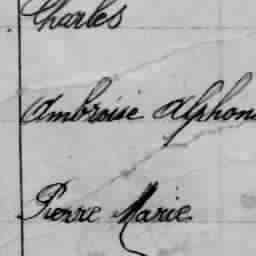 Charles
Ambroise Alphon
Pierre Marie